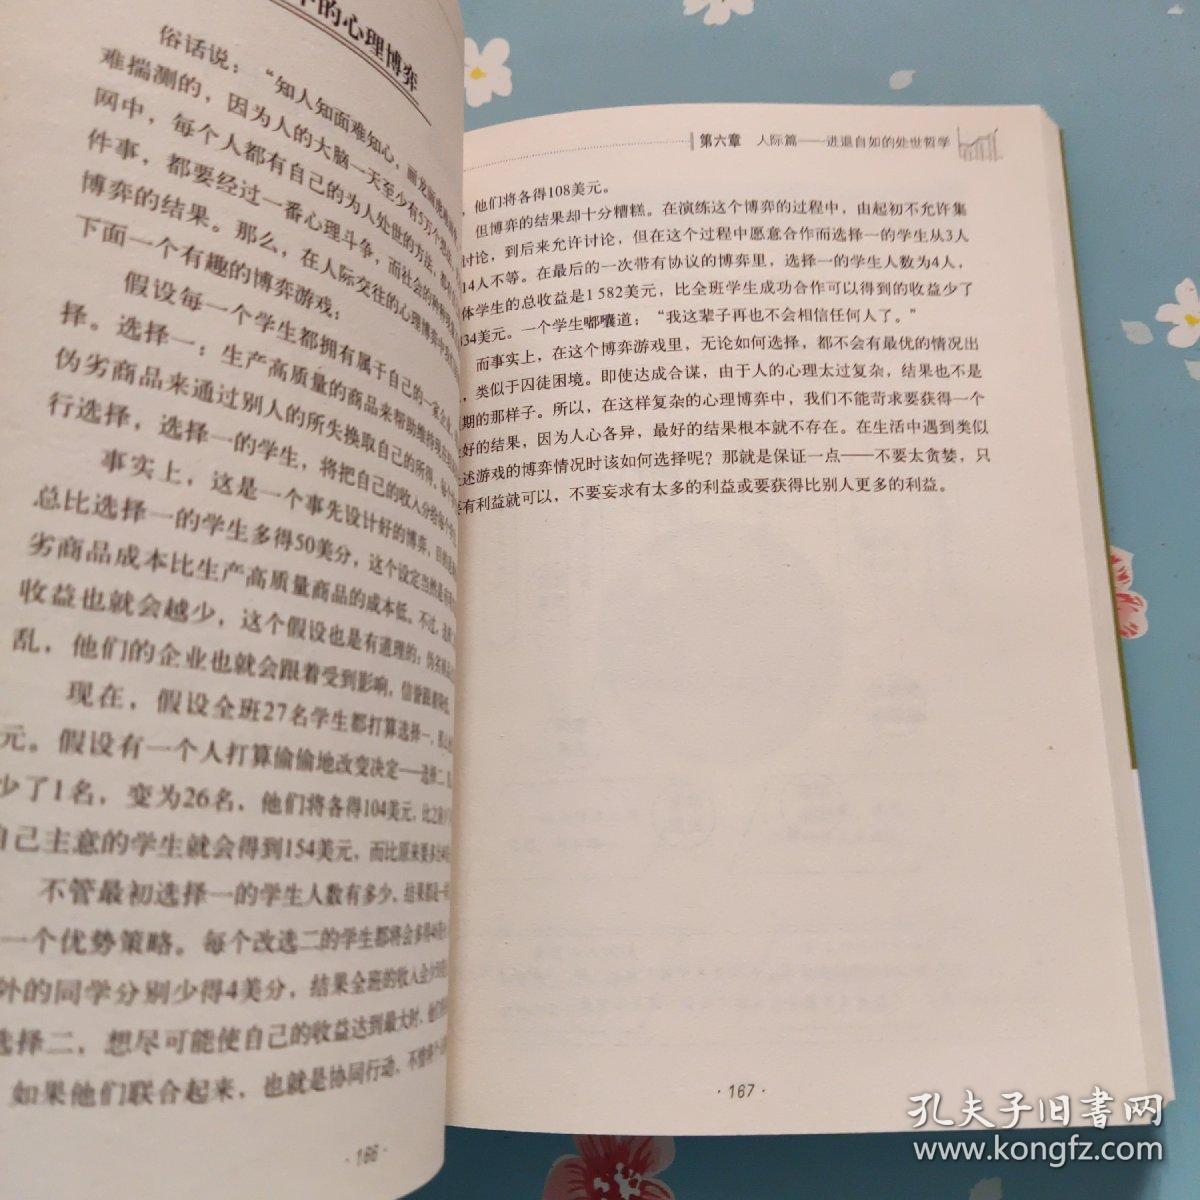 中的心理博弈
俗话说："知人知面难知心，画龙画虎难
难揣测的，因为人的大脑一天至少有5万个想法，
网中，每个人都有自己的为人处世的方法，都
件事，都要经过一番心理斗争，而社会的
博弈的结果。那么，在人际交往的心理博弈中
下面一个有趣的博弈游戏：
假设每一个学生都拥有属于自己的一家企业，
择。选择一：生产高质量的商品来帮助维持现在
伪劣商品来通过别人的所失换取自己的所得，每个
行选择，选择一的学生，将把自己的收入分给每个学生
事实上，这是一个事先设计好的博弈，目的是
总比选择一的学生多得50美分，这个设定当然是
劣商品成本比生产高质量商品的成本低。不过，选择
收益也就会越少，这个假设也是有道理的：伪劣商品
乱，他们的企业也就会跟着受到影响，信誉跟着降低。
现在，假设全班27名学生都打算选择一，那么
元。假设有一个人打算偷偷地改变决定——选择二，
少了1名，变为26名，他们将各得104美元，比之前
自己主意的学生就会得到154美元，而比原来要多
不管最初选择一的学生人数有多少，结果都是一
一个优势策略。每个改选二的学生都将会多得
外的同学分别少得4美分，结果全班的收入会
选择二，想尽可能使自己的收益达到最大时，他们
如果他们联合起来，也就是协同行动，不惜
·166·
第六章 人际篇——进退自如的处世哲学
，他们将各得108美元。
但博弈的结果却十分糟糕。在演练这个博弈的过程中，由起初不允许集
讨论，到后来允许讨论，但在这个过程中愿意合作而选择一的学生从3人
14人不等。在最后的一次带有协议的博弈里，选择一的学生人数为4人，
体学生的总收益是1 582美元，比全班学生成功合作可以得到的收益少了
34美元。一个学生嘟囔道："我这辈子再也不会相信任何人了。"
而事实上，在这个博弈游戏里，无论如何选择，都不会有最优的情况出
，类似于囚徒困境。即使达成合谋，由于人的心理太过复杂，结果也不是
期的那样子。所以，在这样复杂的心理博弈中，我们不能苛求要获得一个
好的结果，因为人心各异，最好的结果根本就不存在。在生活中遇到类似
述游戏的博弈情况时该如何选择呢？那就是保证一点——不要太贪婪，只
要有利益就可以，不要妄求有太多的利益或要获得比别人更多的利益。
·167·
孔夫子旧书网
www.kongfz.com